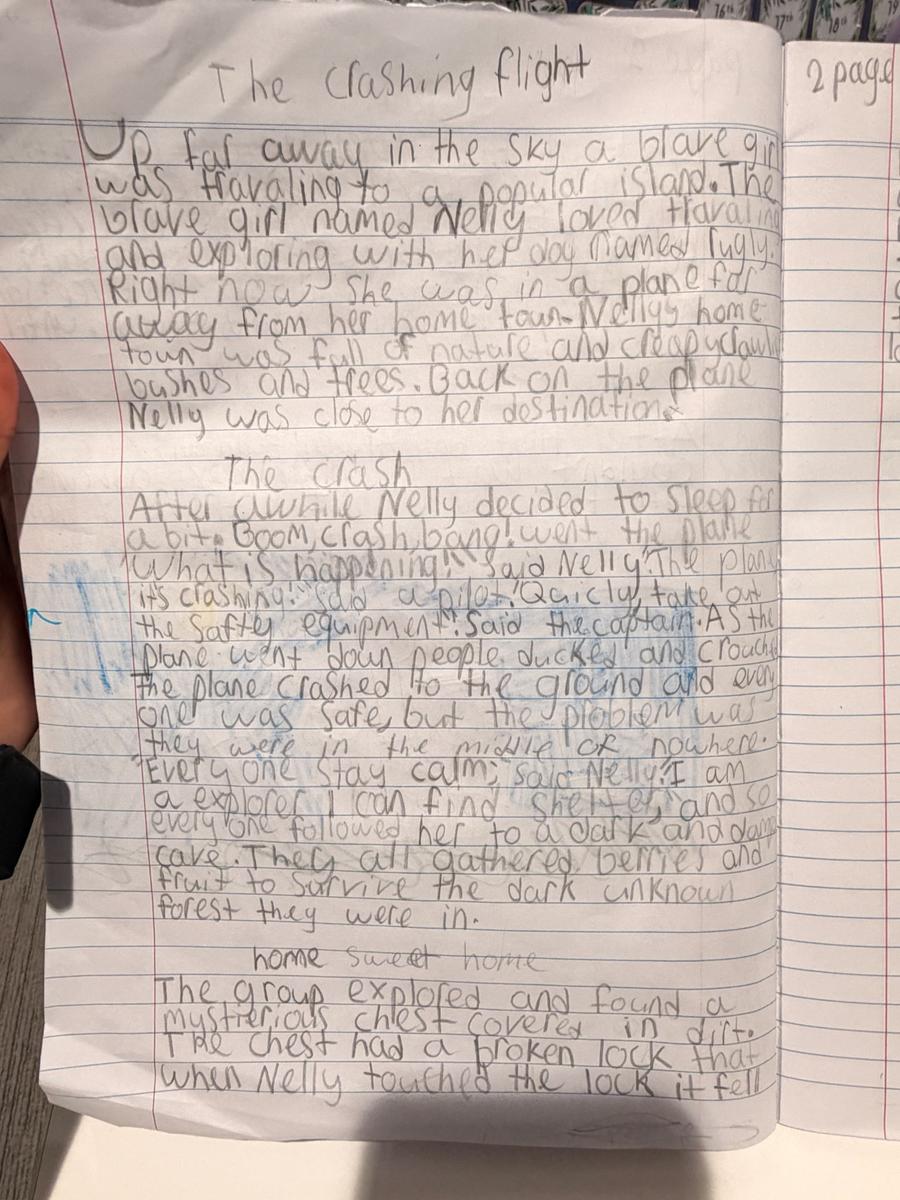 The crashing flight
2 page
Up far away in the sky a brave girl
was travaling to a popular island. The
brave girl named Nelly loved travaling
and exploring with her dog named rugly.
Right now she was in a plane far
away from her home town. Nellys home
town was full of nature and creapycrawly
bushes and trees. Back on the plane
Nelly was close to her destination.
The crash
After awhile Nelly decided to sleep for
a bit. Boom, crash, bang! went the plane
"What is happening!" said Nelly. "The plane
it's crashing!" said a pilot. "Quicly, take out
the safty equipment". Said the captain. As the
plane went down people ducked and crouched
the plane crashed to the ground and every
one was safe, but the problem was
they were in the middle of nowhere.
"Every one stay calm", said Nelly. "I am
a explorer I can find shelter," and so
every one followed her to a dark and damp
cave. They all gathered berries and
fruit to survive the dark unknown
forest they were in.
home sweet home
The group explored and found a
mystrerious chest covered in dirt.
The chest had a broken lock that
when Nelly touched the lock it fell